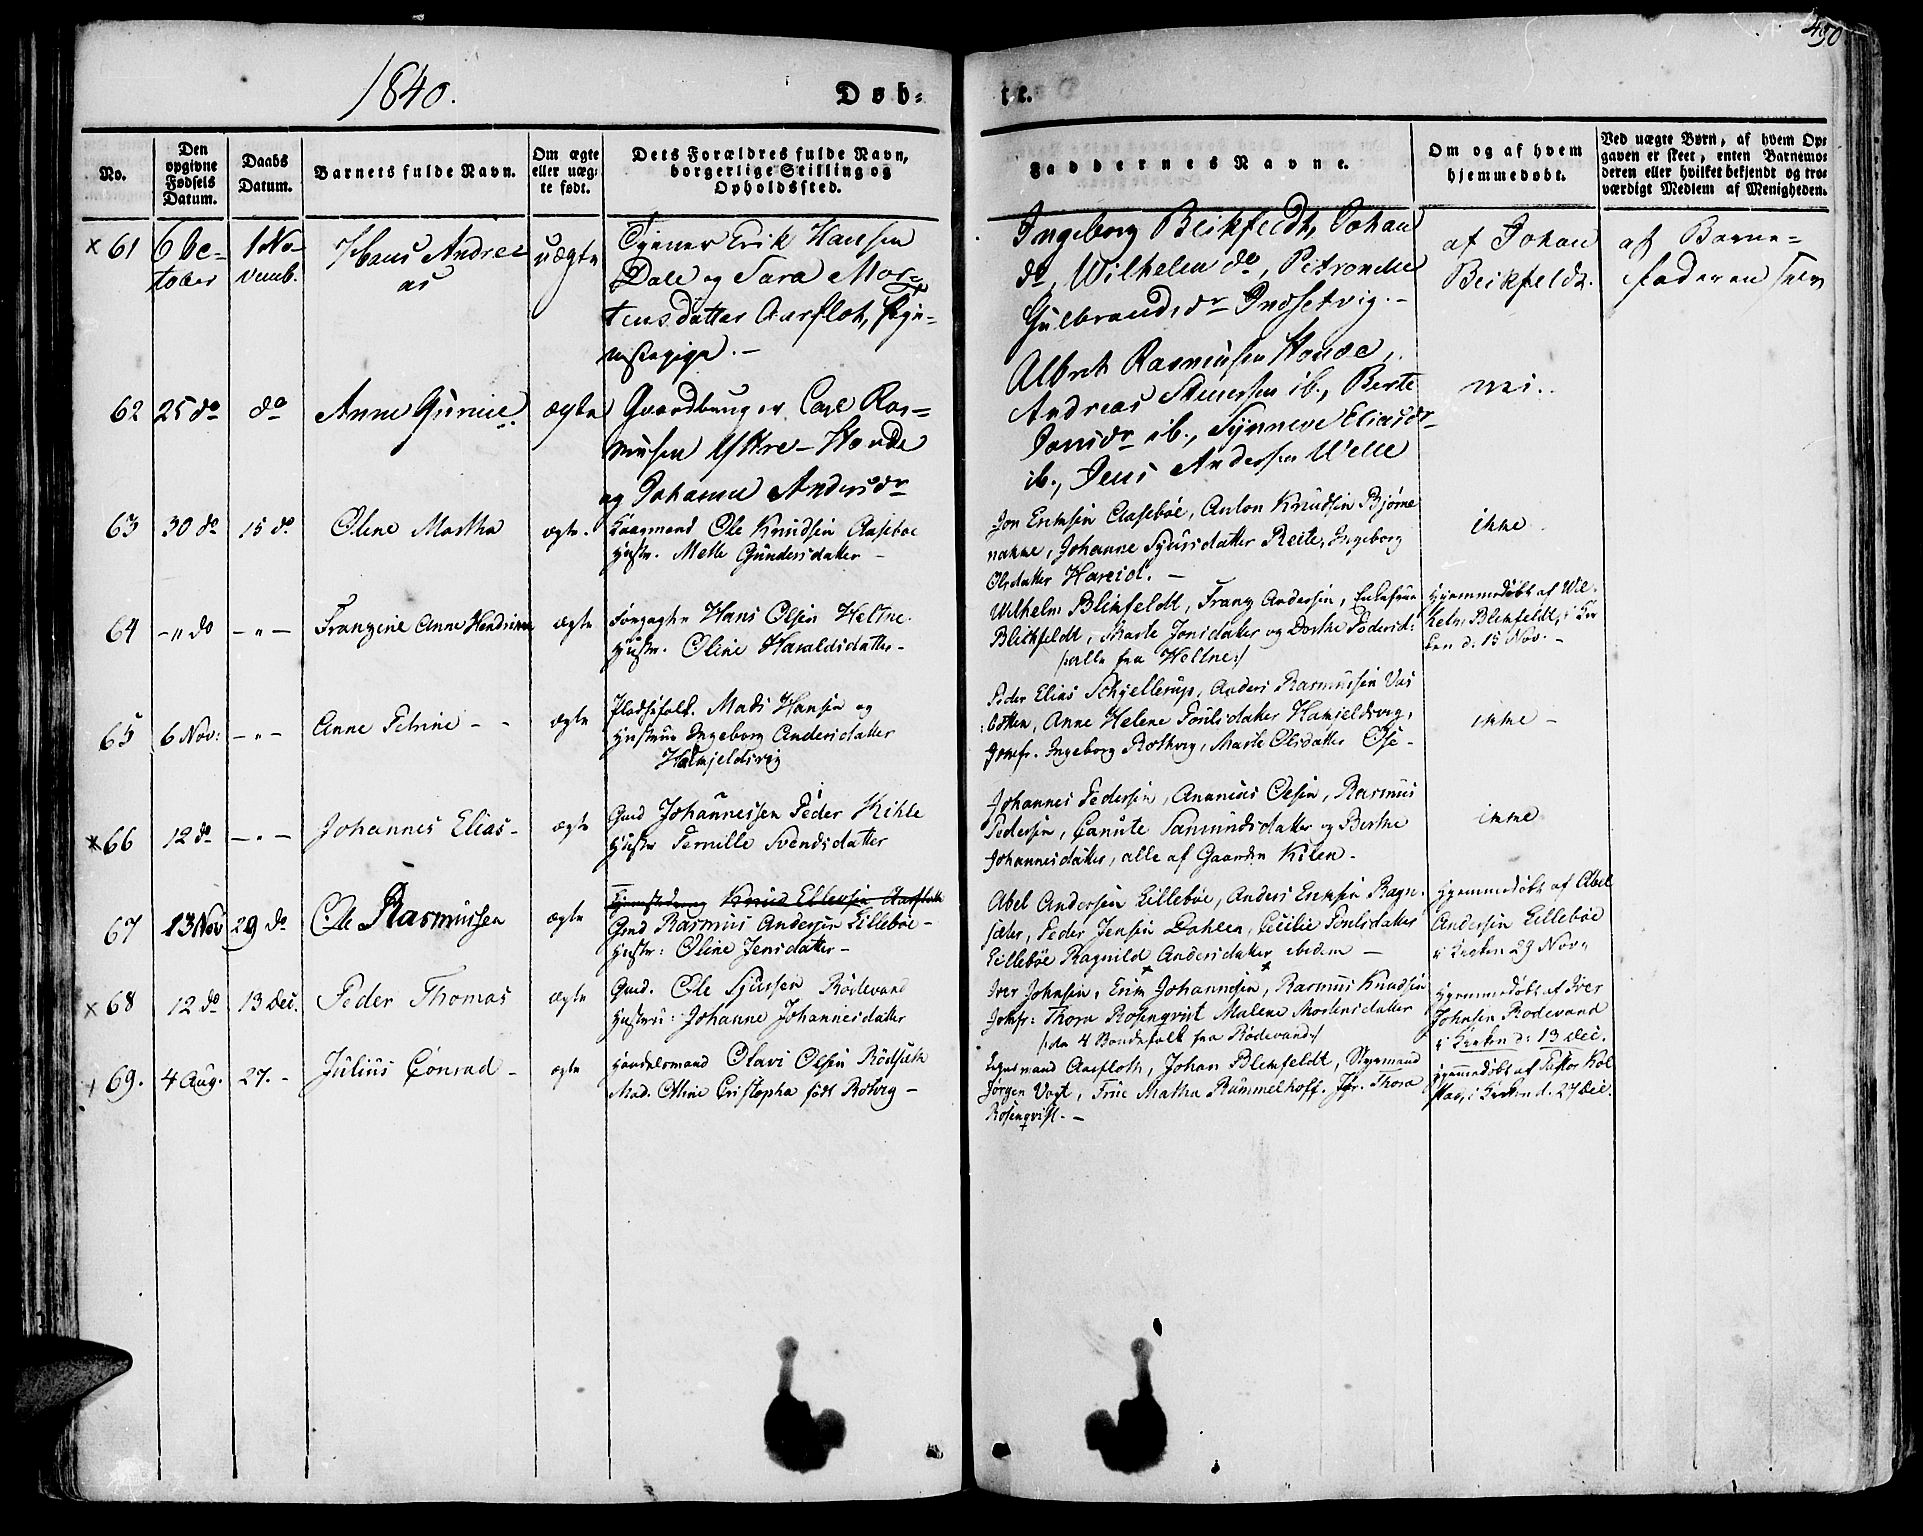 490
1840.
Døb-
te.
No.
Den opgivne Fødsels Datum.
Daabs Datum.
Barnets fulde Navn.
Om ægte eller uæg- te født.
Dets Forældres fulde Navn, borgerlige Stilling og Opholdssted.
Faddernes Navne.
Om og af hvem hjemmedøbt.
Ved uægte Børn, af hvem Op-
gaven er skeet, enten Barnemo-
deren eller hvilket bekjendt og tro-
værdigt Medlem af Menigheden.
× 61 6 Oc- 1 No- Hans Andre- uægte Tjener Erik Hansen
tober vemb. as Dale og Sara Mor-
tensdatter Aarflot, Tje-
nistepige. -
Ingeborg Beikfeldt, Johan
do, Wilhelm do, Petronelle
Gulbrandsdr Indsetvig. -
af Johan
Beikfeldt.
af Barne-
faderen selv
62 25 do do Anne Gurine. ægte Gaardbruger Carl Ras-
musen Yttre-Hovde
og Johanne Andersdr
Albret Rasmusen Hovde,
Andreas Steensen ib., Berte
Jonsdr ib., Synneve Eliasdr
ib., Jens Andersen Welle
nei.
63 30 do 15 do Oline Martha ægte. Ole Knudsen Aasebøe
Hustr. Mette Gundersdatter -
Jon Eriksen Aasebøe, Anton Knudsen Bjørne
nakke, Johanne Sjursdatter Reite, Ingeborg
Olsdatter Hareid. -
ikke
64 -"- do -"- Franzine Anne Hendrikke ægte Hans Olsen Heltne.
Hustr. Oline Haraldsdatter -
Wilhelm Blikfeldt, Franz Andersen,
Blikfeldt, Marte Jonsdatter og Dorthe Pedersd:
/:alle fra Heltne:/
Hjemmedøbt af Wil-
helm Blikfeldt, i Kir
ken d. 15 Nov. -
65 6 Nov: -"- Anne Petrine - - ægte Pladsfolk. Mads Hansen og
Hustrue Ingeborg Andersdatter
Hamjeldsvig
Peder Elias Schjellerup, Anders Rasmussen Vas
botten, Anne Helene Poulsdatter Hamjeldsvig,
Jomfr. Ingeborg Rotvig, Marte Olsdatter Ose -
ikke -
× 66 12 do -"- Johannes Elias - ægte Gmd Johannessen Peder Kihle
Hustr Pernille Svendsdatter
Johannes Pedersen, Ananias Olsen, Rasmus
Pedersen, Canute Samundsdatter og Berthe
Johannesdatter, alle af Gaarden Kilen -
ikke
67 13 Nov 29 do Ole Rasmussen ægte
Gmd Rasmus Andersen Lillebøe -
Hustr: Oline Jensdatter -
Abel Andersen Lillebøe, Anders Eriksen Ragn-
Peder Jensen Dahlen, Cecilie Poulsdatter
Lillebøe Ragnild Andersdatter ibidem -
Hjemmedøbt af Abel
Andersen Lillebøe
i Kirken 29 Nov.
× 68 12 do 13 Dec. Peder Thomas ægte Gmd. Ole Sjursen Rødevand
Hustru: Johanne Johannesdatter
Iver Johnsen, Erik Johannesen, Rasmus Knudsen
Jomfr: Thora Rosenqvist Malene Mortensdatter
/:da 4 Bondefolk fra Rødevand:/
Hjemmedøbt af Iver
Johnsen Rødevand
i Kirken d: 13 Dec.
× 69. 4 Aug. 27. - Julius Conrad - ægte Handelsmand Olavi Olsen Rødseth
Mad. Oline Cristopha født Rotvig -
Lensmand Aarfloth, Johan Blikfeldt, Styrmand
Jørgen Vogt, Frue Matha Rummelhoff. Jfr. Thora
Rosenqvist. -
Hjemmedøbt af Pastor Kol
i Kirken d. 27 Dec.